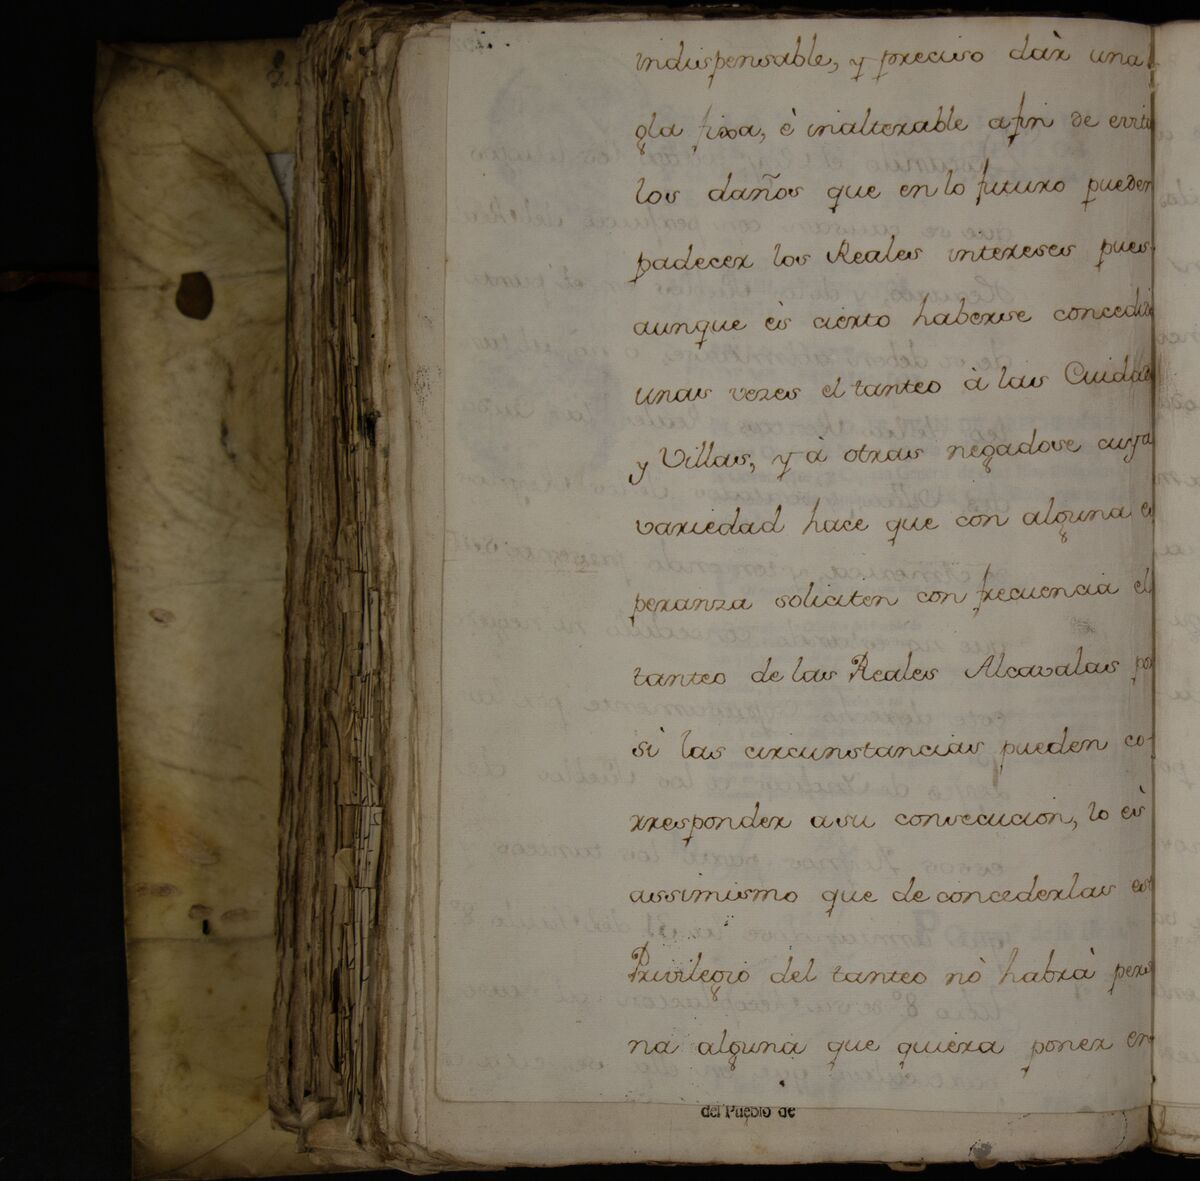 indispensable, y preciso dàr una
gla fixa, è inalterable afin de evita
los daños que en lo futuro pueden
padecer los Reales intereses pues
aunque ès cierto haberse concedido
unas vezes el tanteo à las Cuidad
y Villas, y à otras negadose cuya
variedad hace que con alguna es
peranza soliciten con frecuencia el
tanteo de las Reales Alcavalas por
si las circunstancias pueden co-
rresponder a su consecucion, lo ès
assimismo que de concederlas est
Privilegio del tanteo nò habrà perso
na alguna que quiera poner en
del Pueblo de